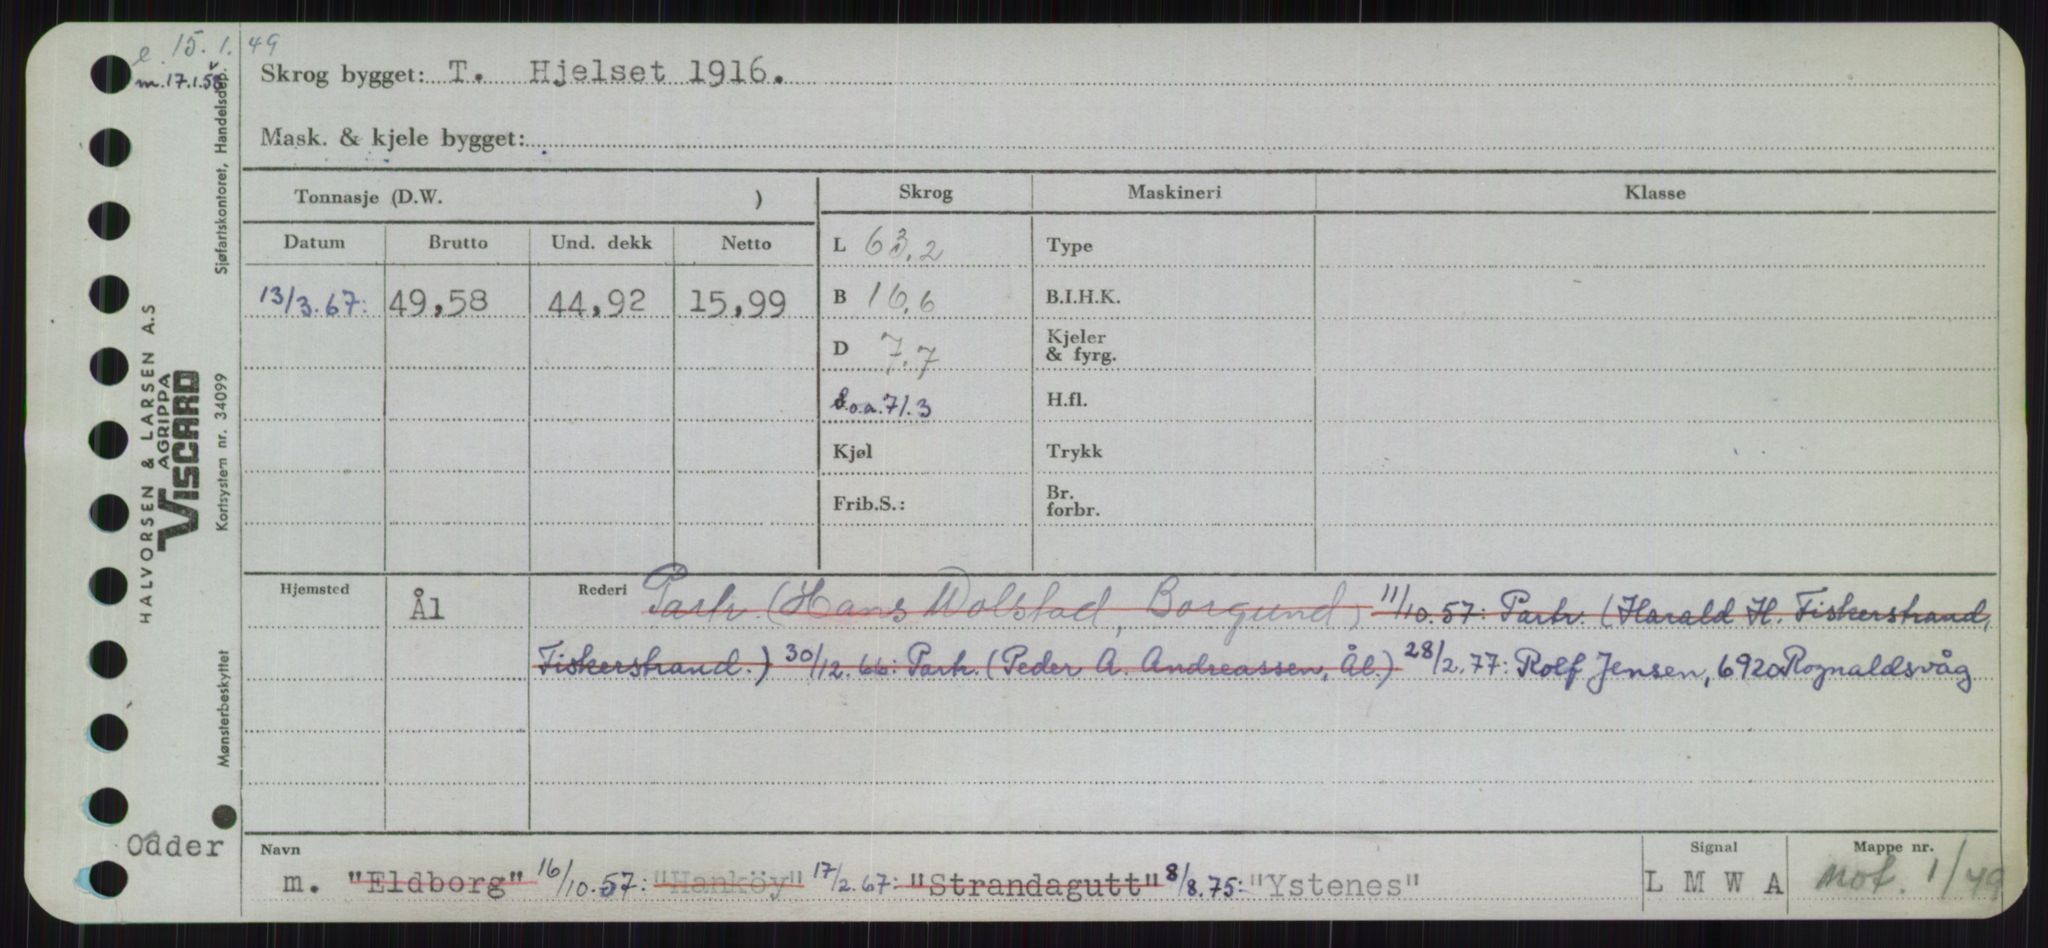 e. 15.1.49
m. 17.1.58
Skrog bygget: T. Hjelset 1916.
Mask. & kjele bygget:
Tonnasje (D.W. )
Skrog
Maskineri
Klasse
Datum
Brutto
Und. dekk
Netto
13/3.67: 49,58 44,92 15,99
L 63,2
B 16,6
D 7,7
l.o.a. 71.3
Kjøl
Frib.S.:
Type
B.I.H.K.
Kjeler
& fyrg.
H.fl.
Trykk
Br.
forbr.
Hjemsted
Ål
Rederi
Partr. (Hans Molstad, Borgund) 11/10.57: Partr. (Harald H. Fiskerstrand,
Fiskerstrand.) 30/12.66: Partr. (Peder A. Andreassen, Ål.) 28/2.77: Rolf Jensen, 6920 Rognaldsvåg
Odder
Navn
m. "Eldborg" 16/10.57: "Hanköy" 17/2.67: "Strandagutt" 8/8.75: "Ystenes"
Signal
L M W A
Mappe nr.
Mot. 1/49
HALVORSEN & LARSEN A.S
AGRIPPA
VISCARD
Mønsterbeskyttet
Kortsystem nr. 34099
Sjøfartskontoret, Handelsdep.